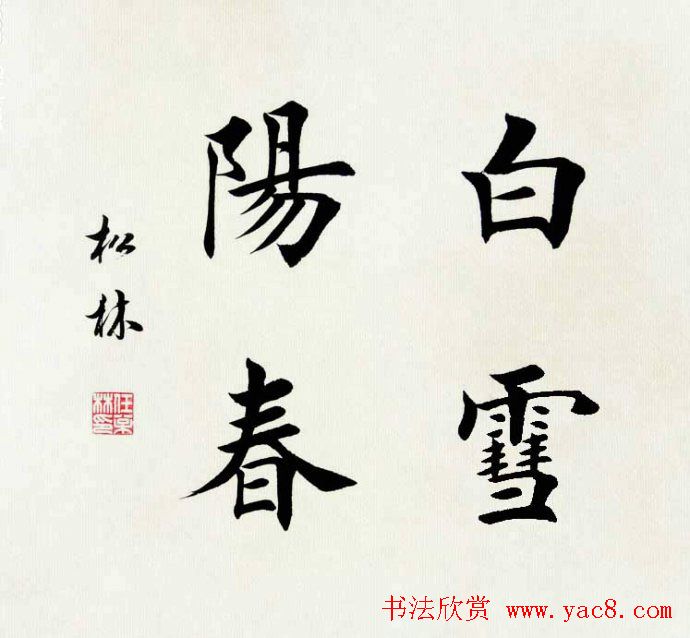 白雪
陽春
松林
书法欣赏 www.yac8.com